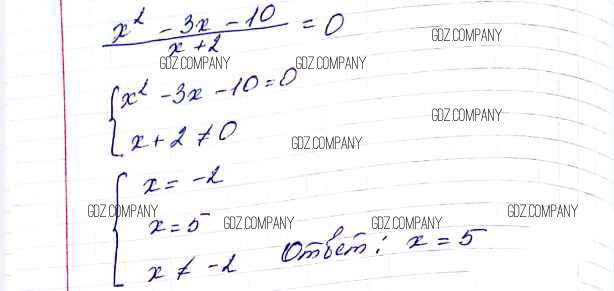 x² - 3x - 10 / x + 2 = 0
GDZ.COMPANY
GDZ.COMPANY GDZ.COMPANY
x² - 3x - 10 = 0
GDZ.COMPANY
x + 2 ≠ 0
GDZ.COMPANY
x = -2
GDZ.COMPANY GDZ.COMPANY
x = 5 GDZ.COMPANY GDZ.COMPANY
x ≠ -2 Ответ: x = 5